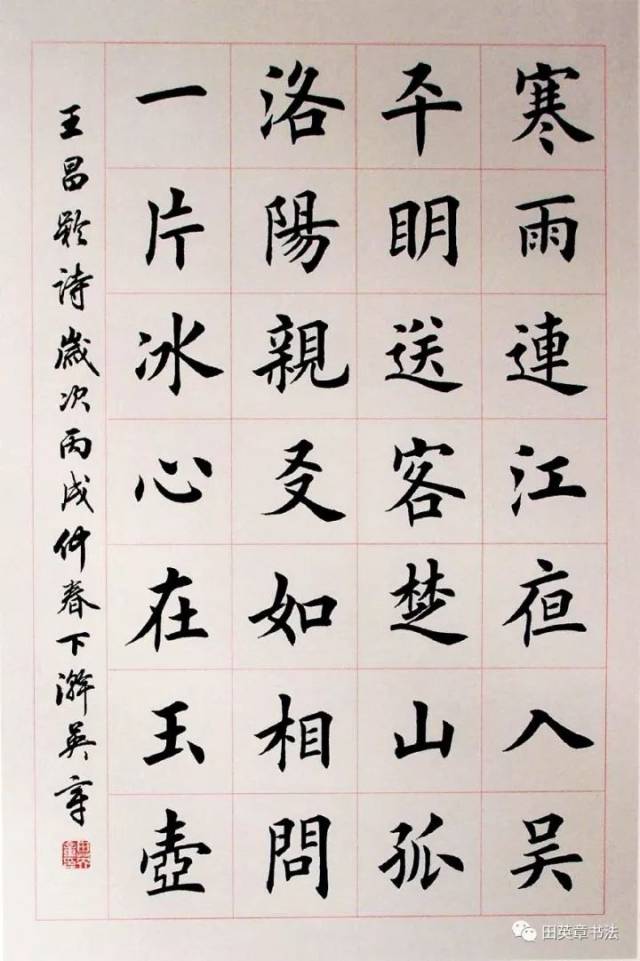 寒雨連江夜入吴
平明送客楚山孤
洛陽親友如相問
一片冰心在玉壺
王昌龄诗歲次丙戌仲春下澣英章
田英章书法